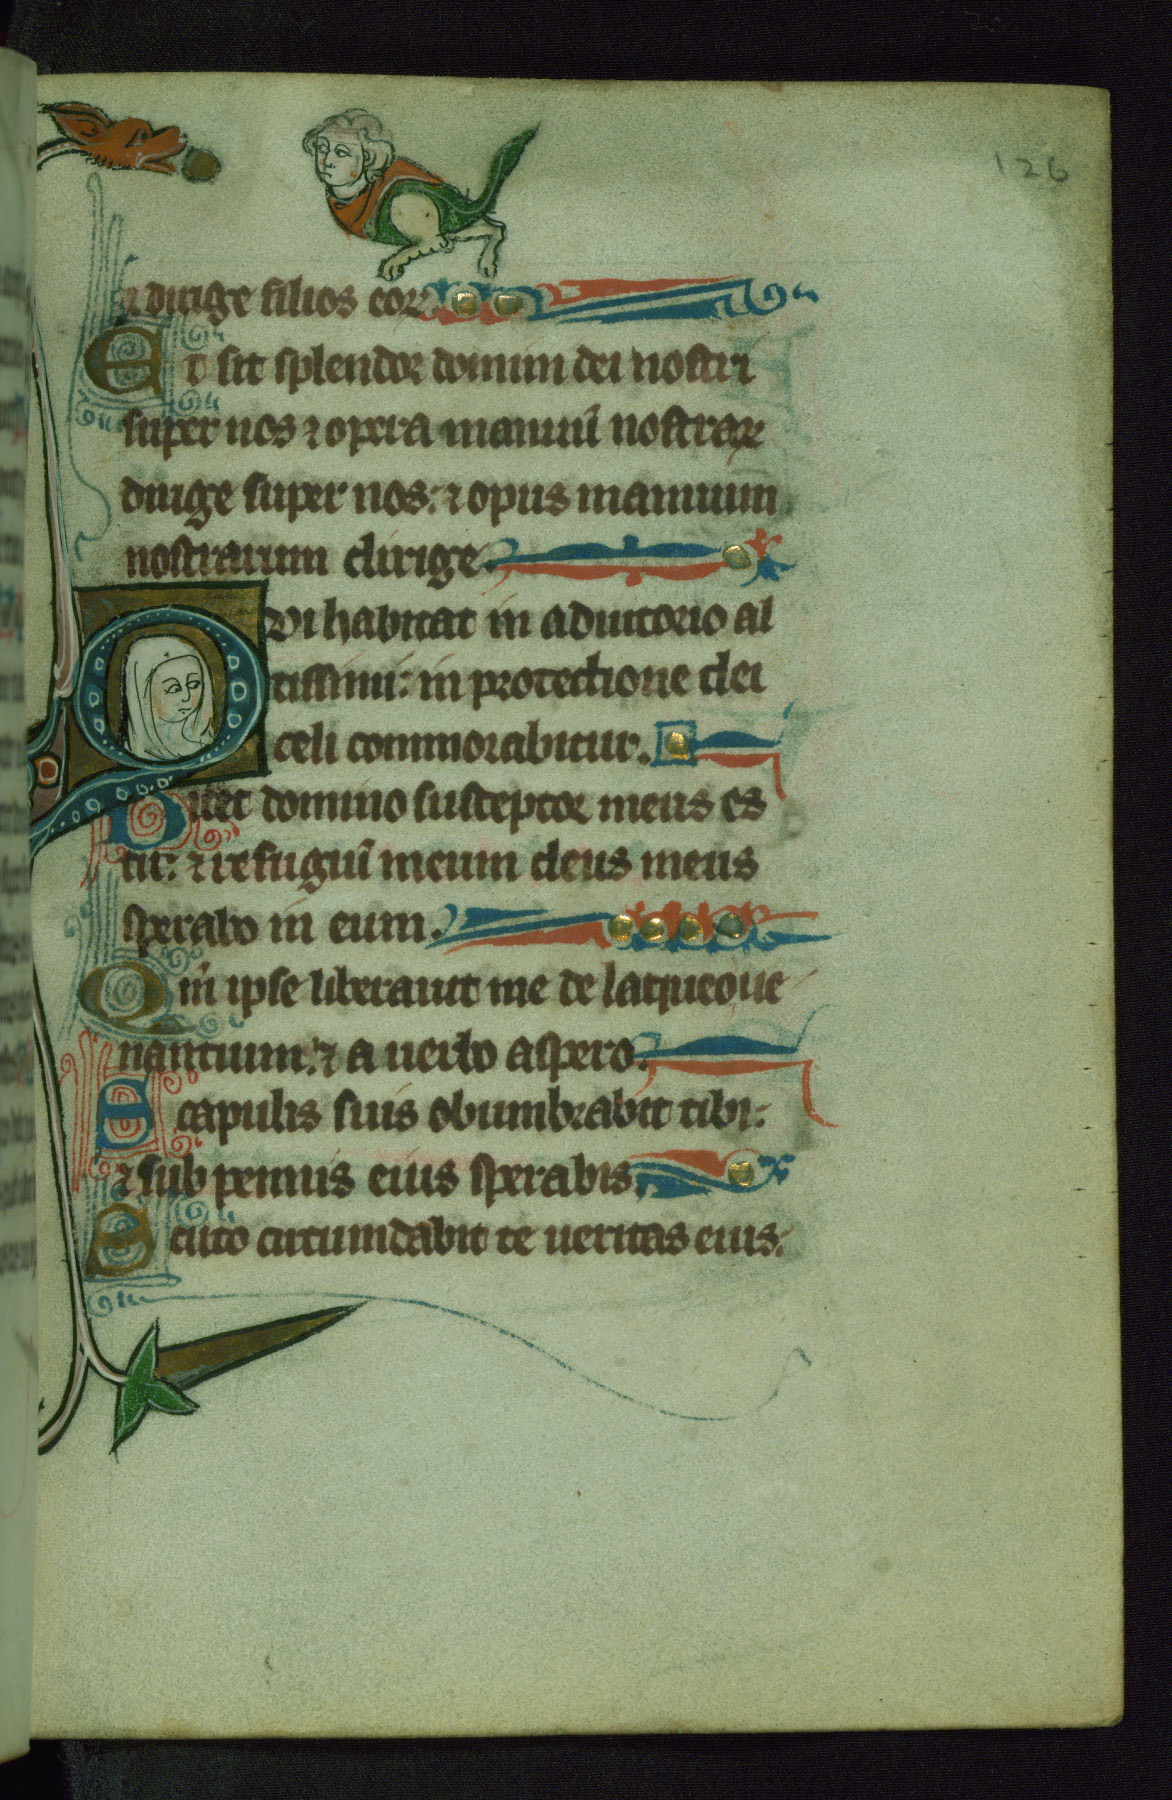 126
& dirige filios eoꝝ.
Et sit splendor domini dei nostri
super nos ⁊ opera manuũ nostraꝝ
dirige super nos: ⁊ opus manuum
nostrarum dirige.
Qui habitat in adiutorio al
tissimi: in protectione dei
celi commorabitur.
Dicet domino susceptor meus es
tu: ⁊ refugiũ meum deus meus
sperabo in eum.
Qm̃ ipse liberauit me de laqueo ue
nantium: ⁊ a uerbo aspero.
Scapulis suis obumbrabit tibi:
⁊ sub pennis eius sperabis.
Scuto circumdabit te ueritas eius: